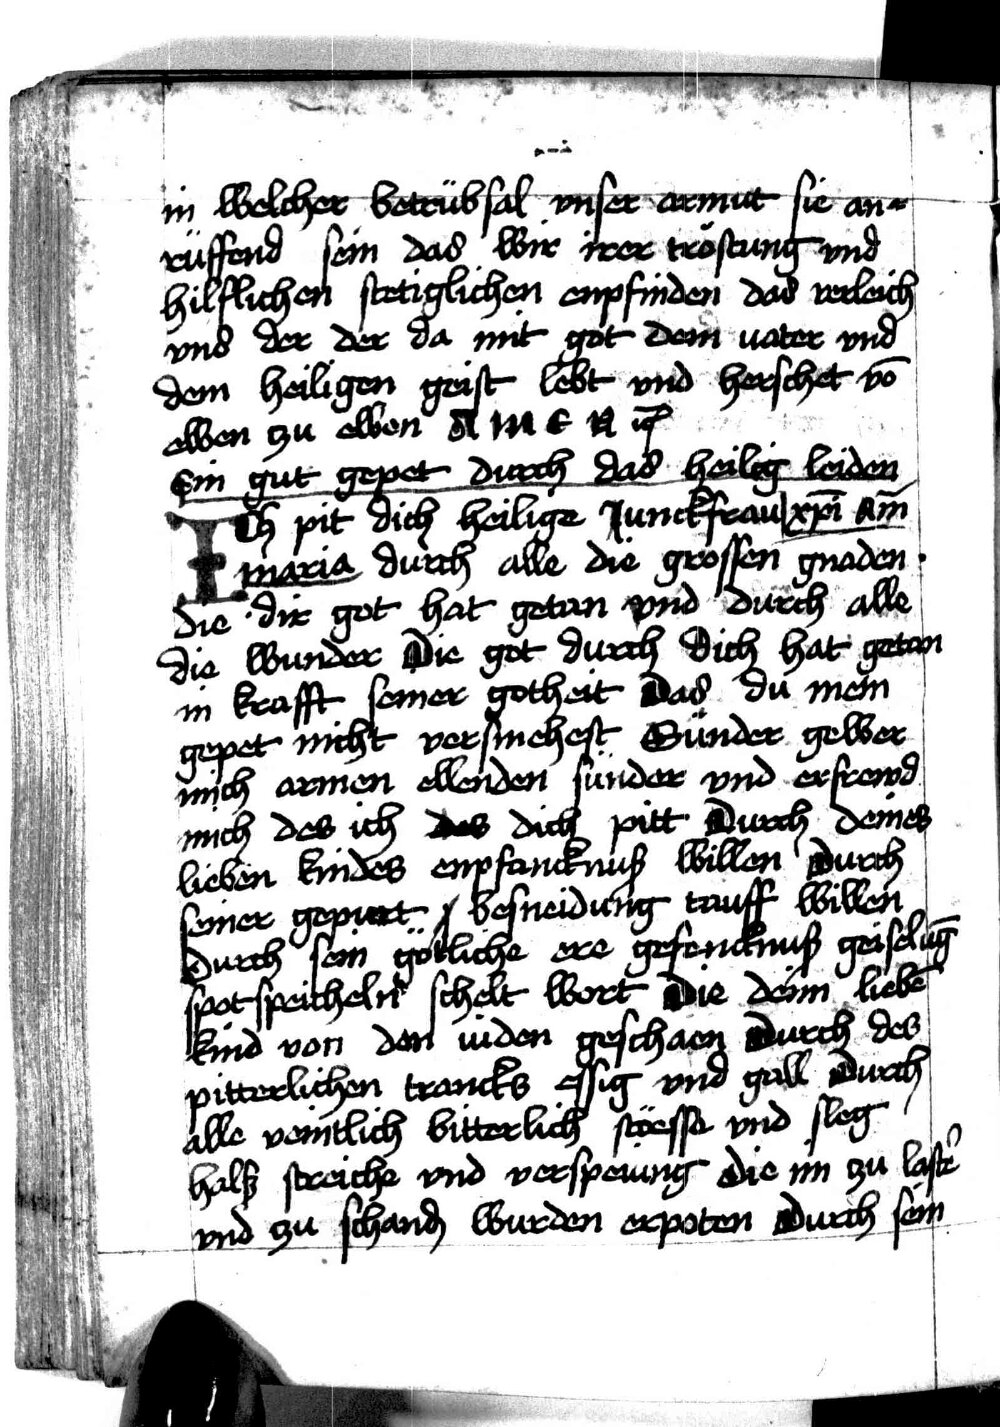 in welcher betrübsal vnser armut sie an-
rüffend sein das wir irer tröstung vnd
hilflichen stetiglichen enpfinden das verleich
vns der der da mit got dem vater vnd
dem heiligen geist lebt vnd herschet vō
ewen zu ewen A M E N
Ein gut gepet durch das heilig leiden
Ich pit dich heilige Junckfrau xp̄i Am̄
maria durch alle die grossen gnaden
die dir got hat getan vnd durch alle
die wunder Die got durch Dich hat getan
in krafft seiner gotheit Das du mein
gepet nicht versmehest Sünder gewer
mich armen ellenden sünder vnd erfrewd
mich des ich des dich pitt Durch deines
lieben kindes enpfancknuß willen Durch
seiner gepurt besneidung tauff willen
Durch sein götliche ere gefencknuß geislūg
spot speicheln schelt wort Die deim liebē
kind von den iuden geschaen Durch des
pitterlichen trancks essig vnd gall Durch
alle veintlich bitterlich stöesse vnd sleg
halß streiche vnd verspeiung Die im zu laster
vnd zu schand wurden erpoten Durch sein